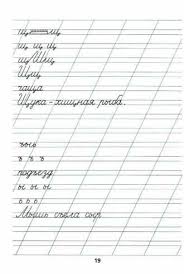 щ щ
щ щ щ
щ Щ щ
Щщ
чаща
Щука - хищная рыба.
ъ ъ ъ
подъезд
ы ы ы
ь ь ь
Мышь съела сыр
19